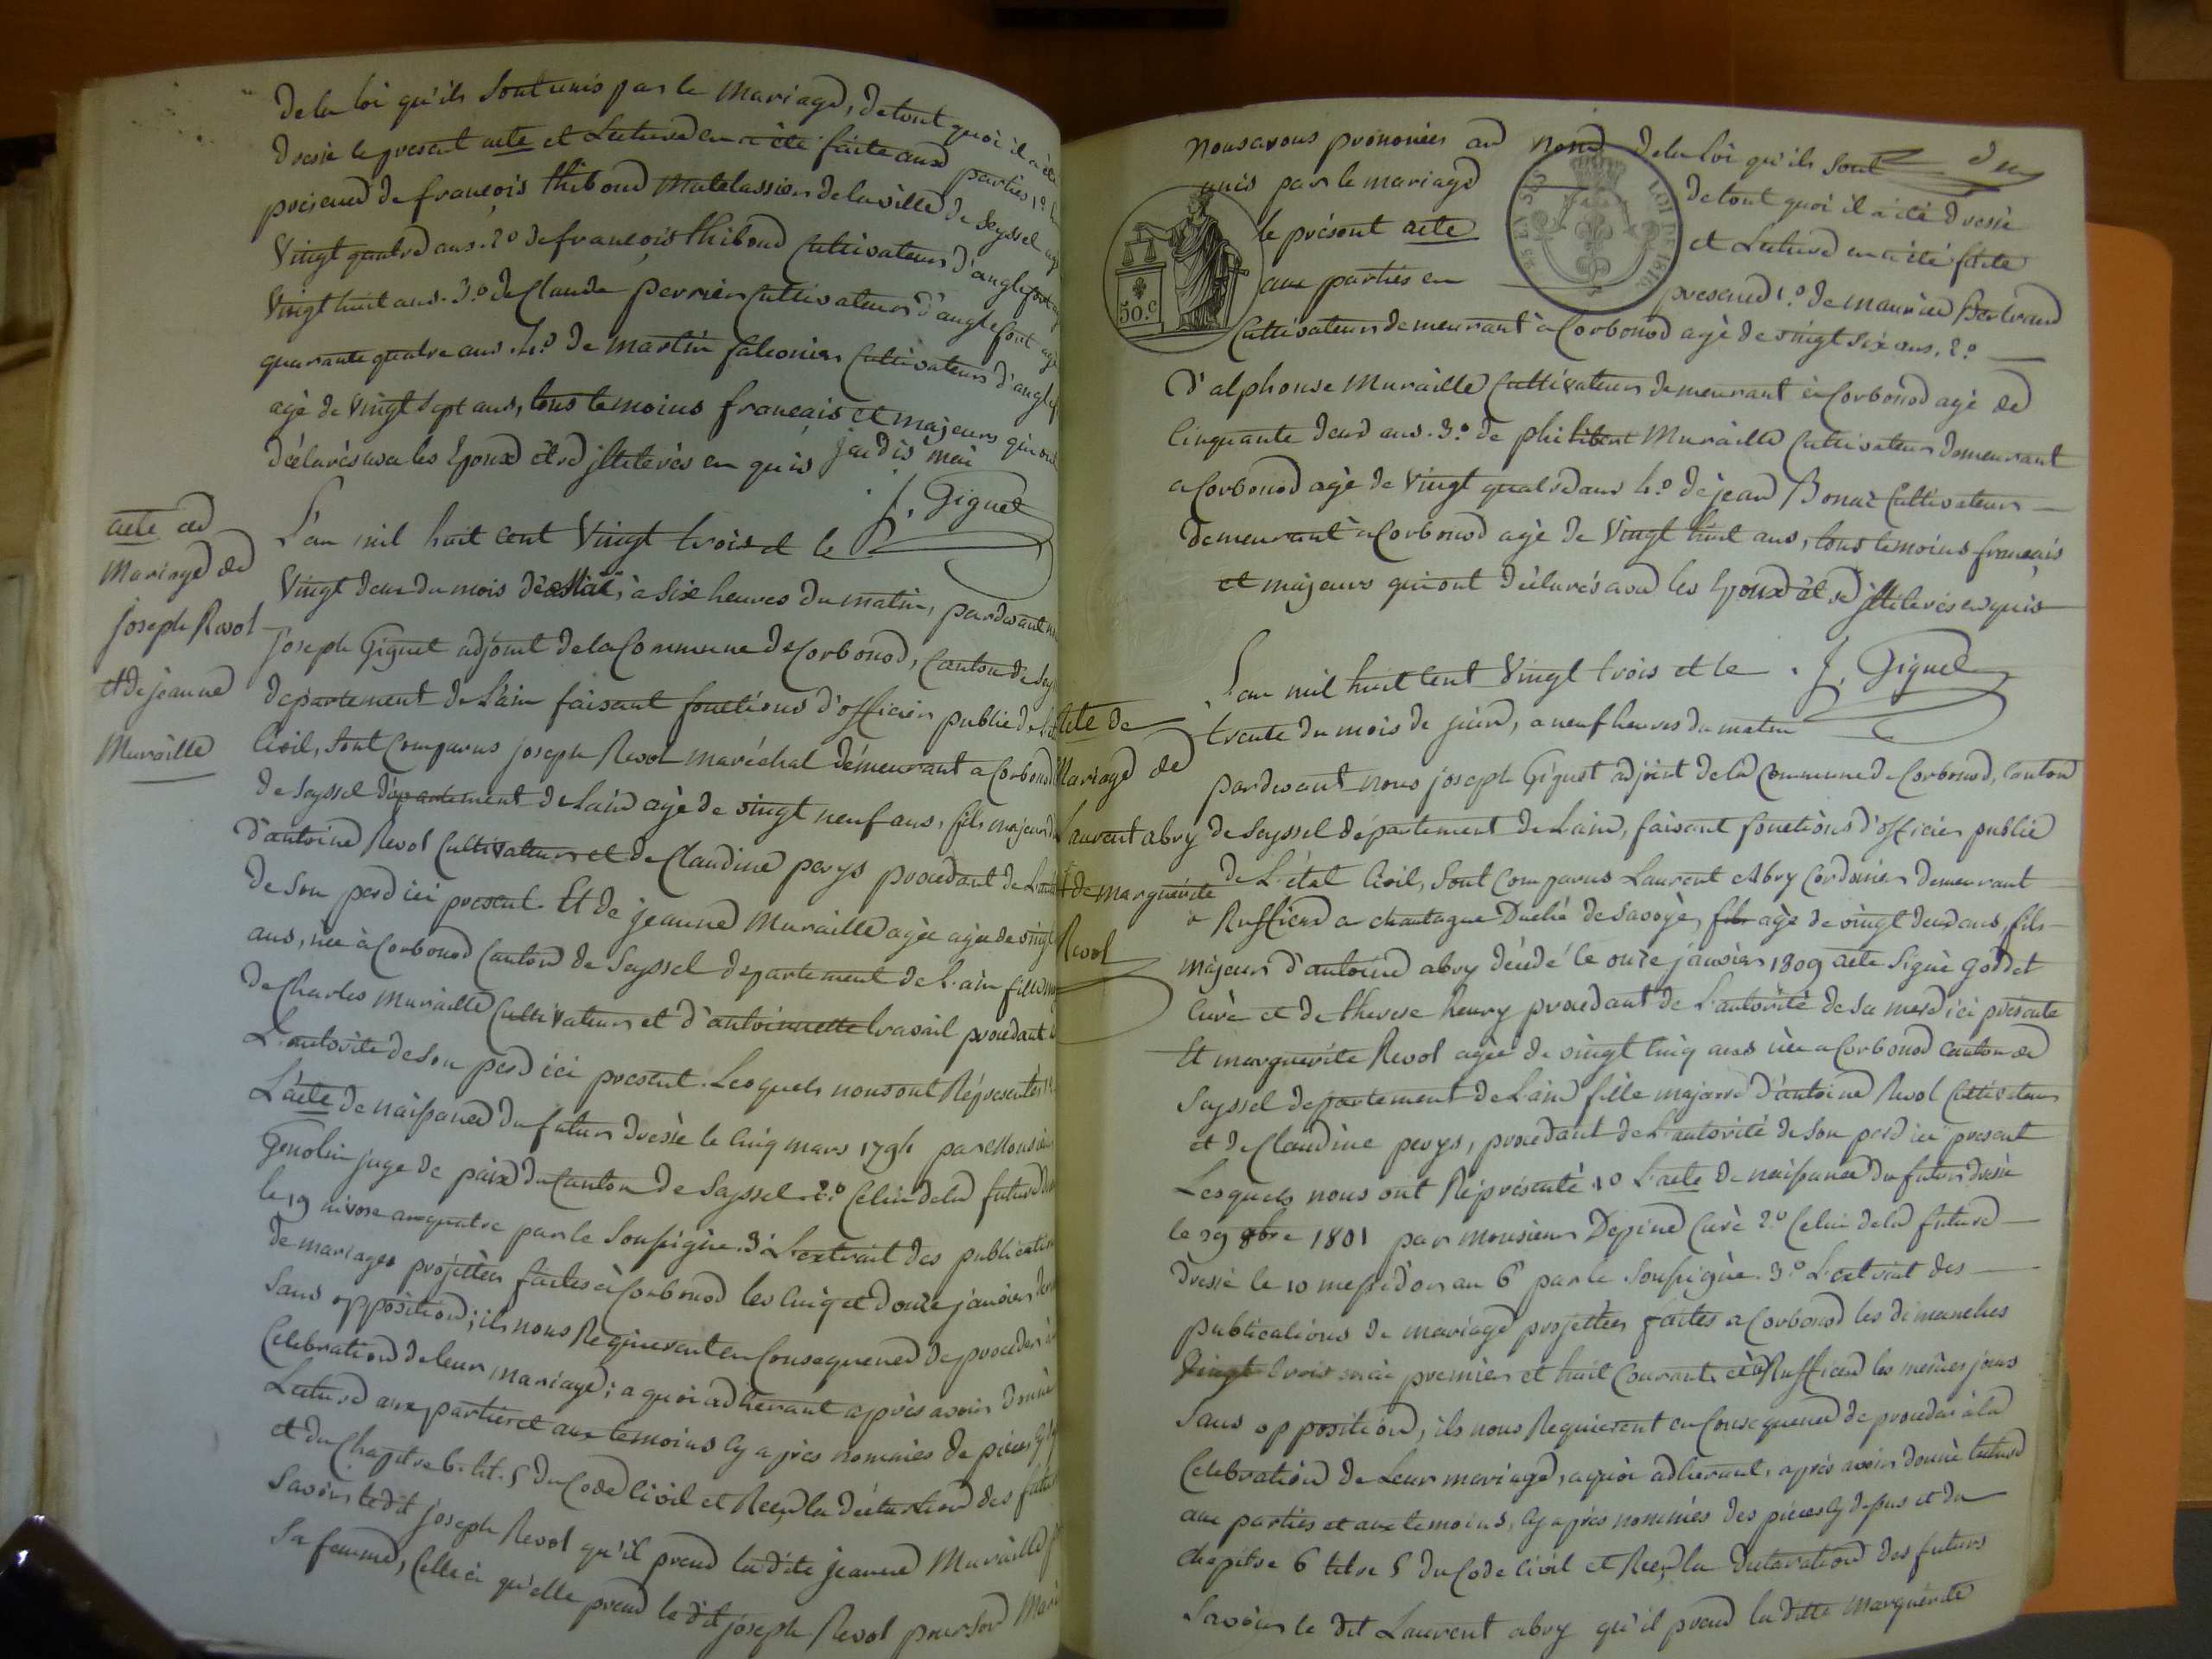 de la loi qu'ils sont unis par le mariage, de tout quoi il a été
dressé le present acte et Lecture en a été faite aux parties 1º
presence de françois thiboud Matelassier de la ville de Seyssel agé
Vingt quatre ans. 2º de françois thiboud Cultivateur d'anglefort
Vingt huit ans. 3.º de Claude perrier Cultivateur d'anglefort agé
quarante quatre ans. 4.º de martin falconier Cultivateur d'anglef
agé de Vingt Sept ans, tous temoins francais et majeurs qui ont
déclarés avec les Epoux être illiterés en quis jai dis moi
J. Giguet
acte de
Mariage de
joseph Revol
et de jeanne
Muraille
L'an mil huit cent Vingt trois et le
Vingt deux du mois de Mai, à Six heures du matin, pardevant
joseph Giguet adjoint de la Commune de Corbonod, Canton de Sey
departement de L'ain faisant fonctions d'officier public de l'
Civil, Sont Comparus joseph Revol maréchal demeurant a Corbonod
de Seyssel département de Lain agé de vingt neuf ans, fils majeur
d'antoine Revol Cultivateur et de Claudine perys procedant de L'
de Son pere ici present. Et de jeanne Muraille agée agée de vingt
ans, née à Corbonod Canton de Seyssel departement de L'ain fille
de Charles Muraille Cultivateur et d'antoinnette travail procedant
L'autorité de Son pere ici present. Lesquels nous ont Réprésentés
L'acte de naissance du futur dressé le Cinq mars 1794 par Monsieur
Genolin juge de paix du Canton de Seyssel 2.º Celui de la future
le 19 nivose an quatre par le Soussigné. 3º L'extrait des publication
de mariages projettées faites à Corbonod les Cinq et douze janvier
Sans opposition; ils nous Requierent en Consequence de proceder à
Celebration de leur mariage; a quoi adherant après avoir donné
Lecture aux parties et aux temoins cy après nommés de pièces
et du Chapitre 6. tit. 5 du Code Civil et Reçu la déclaration des futur
Savoir le dit joseph Revol qu'il prend la dite jeanne Muraille
Sa femme, Celle ci qu'elle prend le dit joseph Revol pour Son Mari
Nous avons prononcés au nom de la loi qu'ils Sont
unis par le mariage de tout quoi il a été dressé
le présent acte et Lecture en a été faite
aux parties en presence 1.º de maurice Bertrand
50.c
LOI DE 1816
Cultivateur demeurant à Corbonod agé de vingt Six ans. 2.º
D'alphonse Muraille Cultivateur demeurant à Corbonod agé de
Cinquante deux ans. 3.º de philibert Muraille Cultivateur demeurant
a Corbonod agé de Vingt quatre ans 4.º de jean Bonaz Cultivateur
demeurant à Corbonod agé de Vingt huit ans, tous temoins francais
et majeurs qui ont déclarés avec les Epoux être illiterés en quis
J. Giguet
acte de
Mariage de
Laurent abry
et de marguerite
Revol
L'an mil huit Cent Vingt trois et le
trente du mois de juin, a neuf heures du matin
pardevant nous joseph Giguet adjoint de la Commune de Corbonod, Canton
de Seyssel département de Lain, faisant fonctions d'officier public
de L'état Civil, Sont Comparus Laurent Abry Cordonier demeurant
à Ruffieux a chautagne Duché de Savoye, fils agé de vingt deux ans, fils
majeur d'antoine abry décédé le onze janvier 1809 acte Signé goddet
Curé et de therese henry procedant de L'autorité de Sa mere ici présente
Et marguerite Revol agée de vingt Cinq ans née a Corbonod Canton de
Seyssel departement de Lain fille majeure d'antoine Revol Cultivateur
et de Claudine perys, procedant de L'autorité de Son pere ici present
Lesquels nous ont Réprésenté 1º L'acte de naissance du futur dressé
le 29 8bre 1801 par monsieur Depine Curé 2.º Celui de la future
dressé le 10 messidor an 6 par le Soussigné. 3.º L'extrait des
publications de mariage projettées faites a Corbonod les dimanches
Vingt trois mai premier et huit Courant et à Ruffieux les mêmes jours
Sans opposition, ils nous Requierent en Consequence de proceder à la
Celebration de Leur mariage, a quoi adherant, après avoir donné lecture
aux parties et aux temoins, cy après nommés des pieces cy dessus et du
chapitre 6 titre 5 du Code Civil et Reçu la declaration des futurs
Savoir le dit Laurent abry qu'il prend la ditte Marguerite